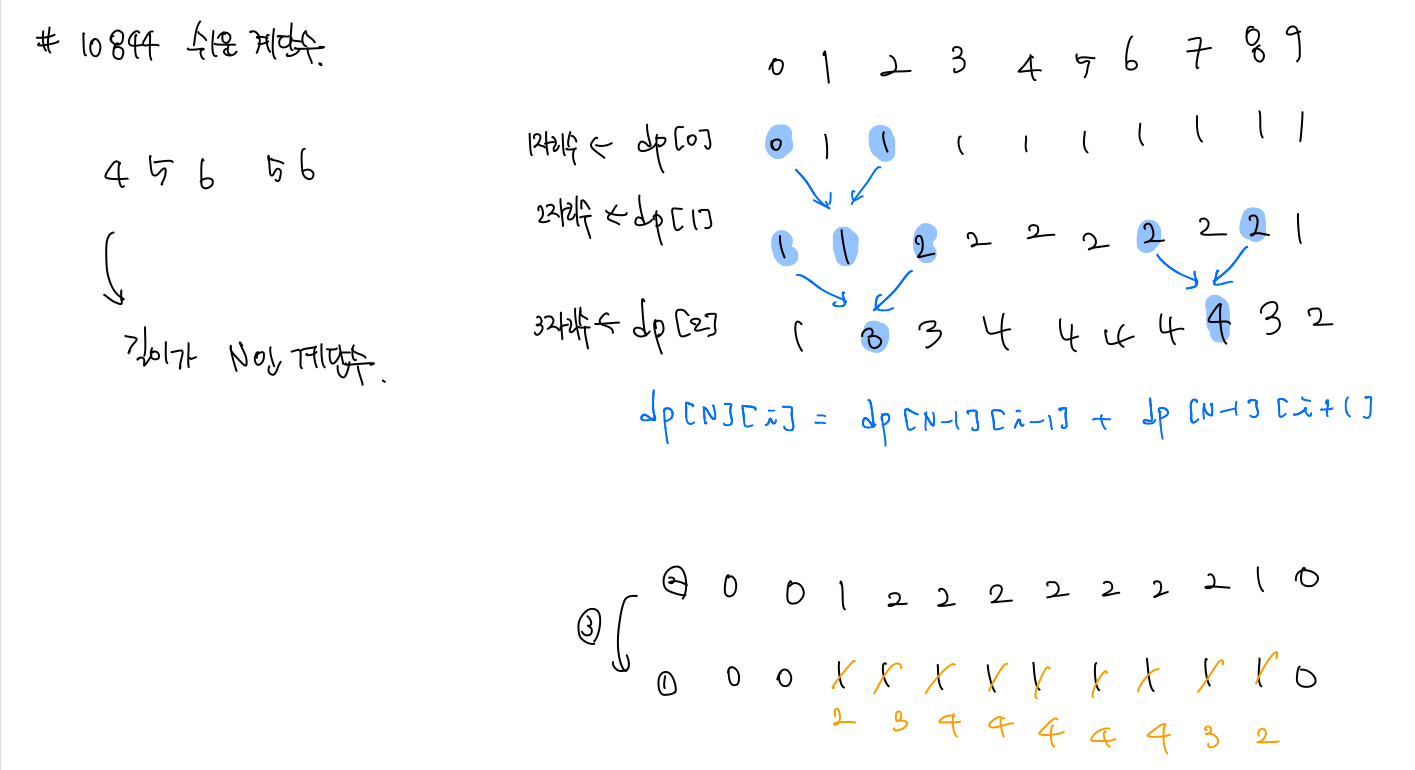 # 10844 쉬운 계단수.
4 5 6 5 6
길이가 N인 계단수.
0 1 2 3 4 5 6 7 8 9
1자리수 ← dp[0] 0 1 1 1 1 1 1 1 1 1
2자리수 ← dp[1] 1 1 2 2 2 2 2 2 2 1
3자리수 ← dp[2] 1 3 3 4 4 4 4 4 3 2
dp[N][i] = dp[N-1][i-1] + dp[N-1][i+1]
② 0 0 1 2 2 2 2 2 2 2 1 0
③
① 0 0 1 1 1 1 1 1 1 1 1 0
2 3 4 4 4 4 4 3 2